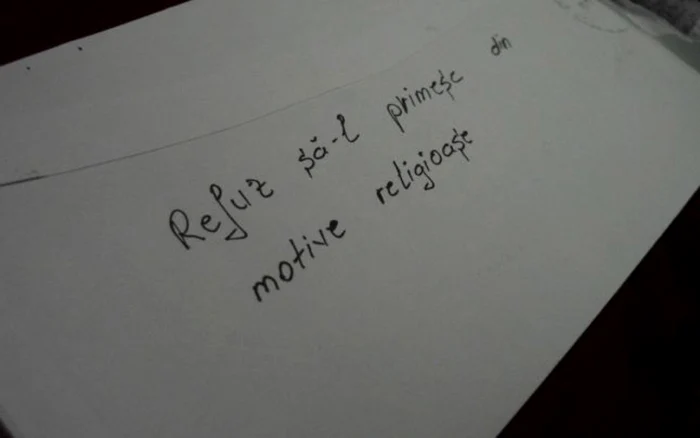 Refuz șă-l primeșc din
motive religioașe